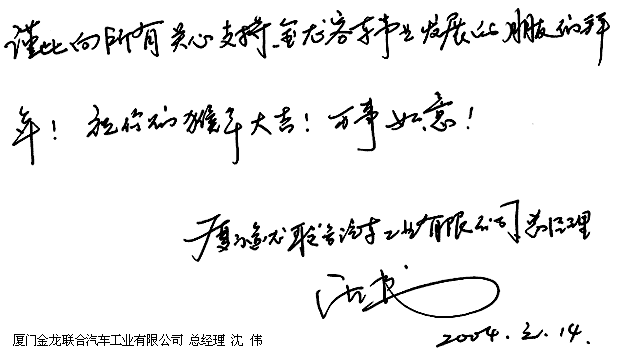 谨此向所有关心支持金龙客车事业发展的朋友们拜
年！祝你们猴年大吉！万事如意！
厦门金龙联合汽车工业有限公司总经理
2004.2.14.
厦门金龙联合汽车工业有限公司 总经理 沈 伟